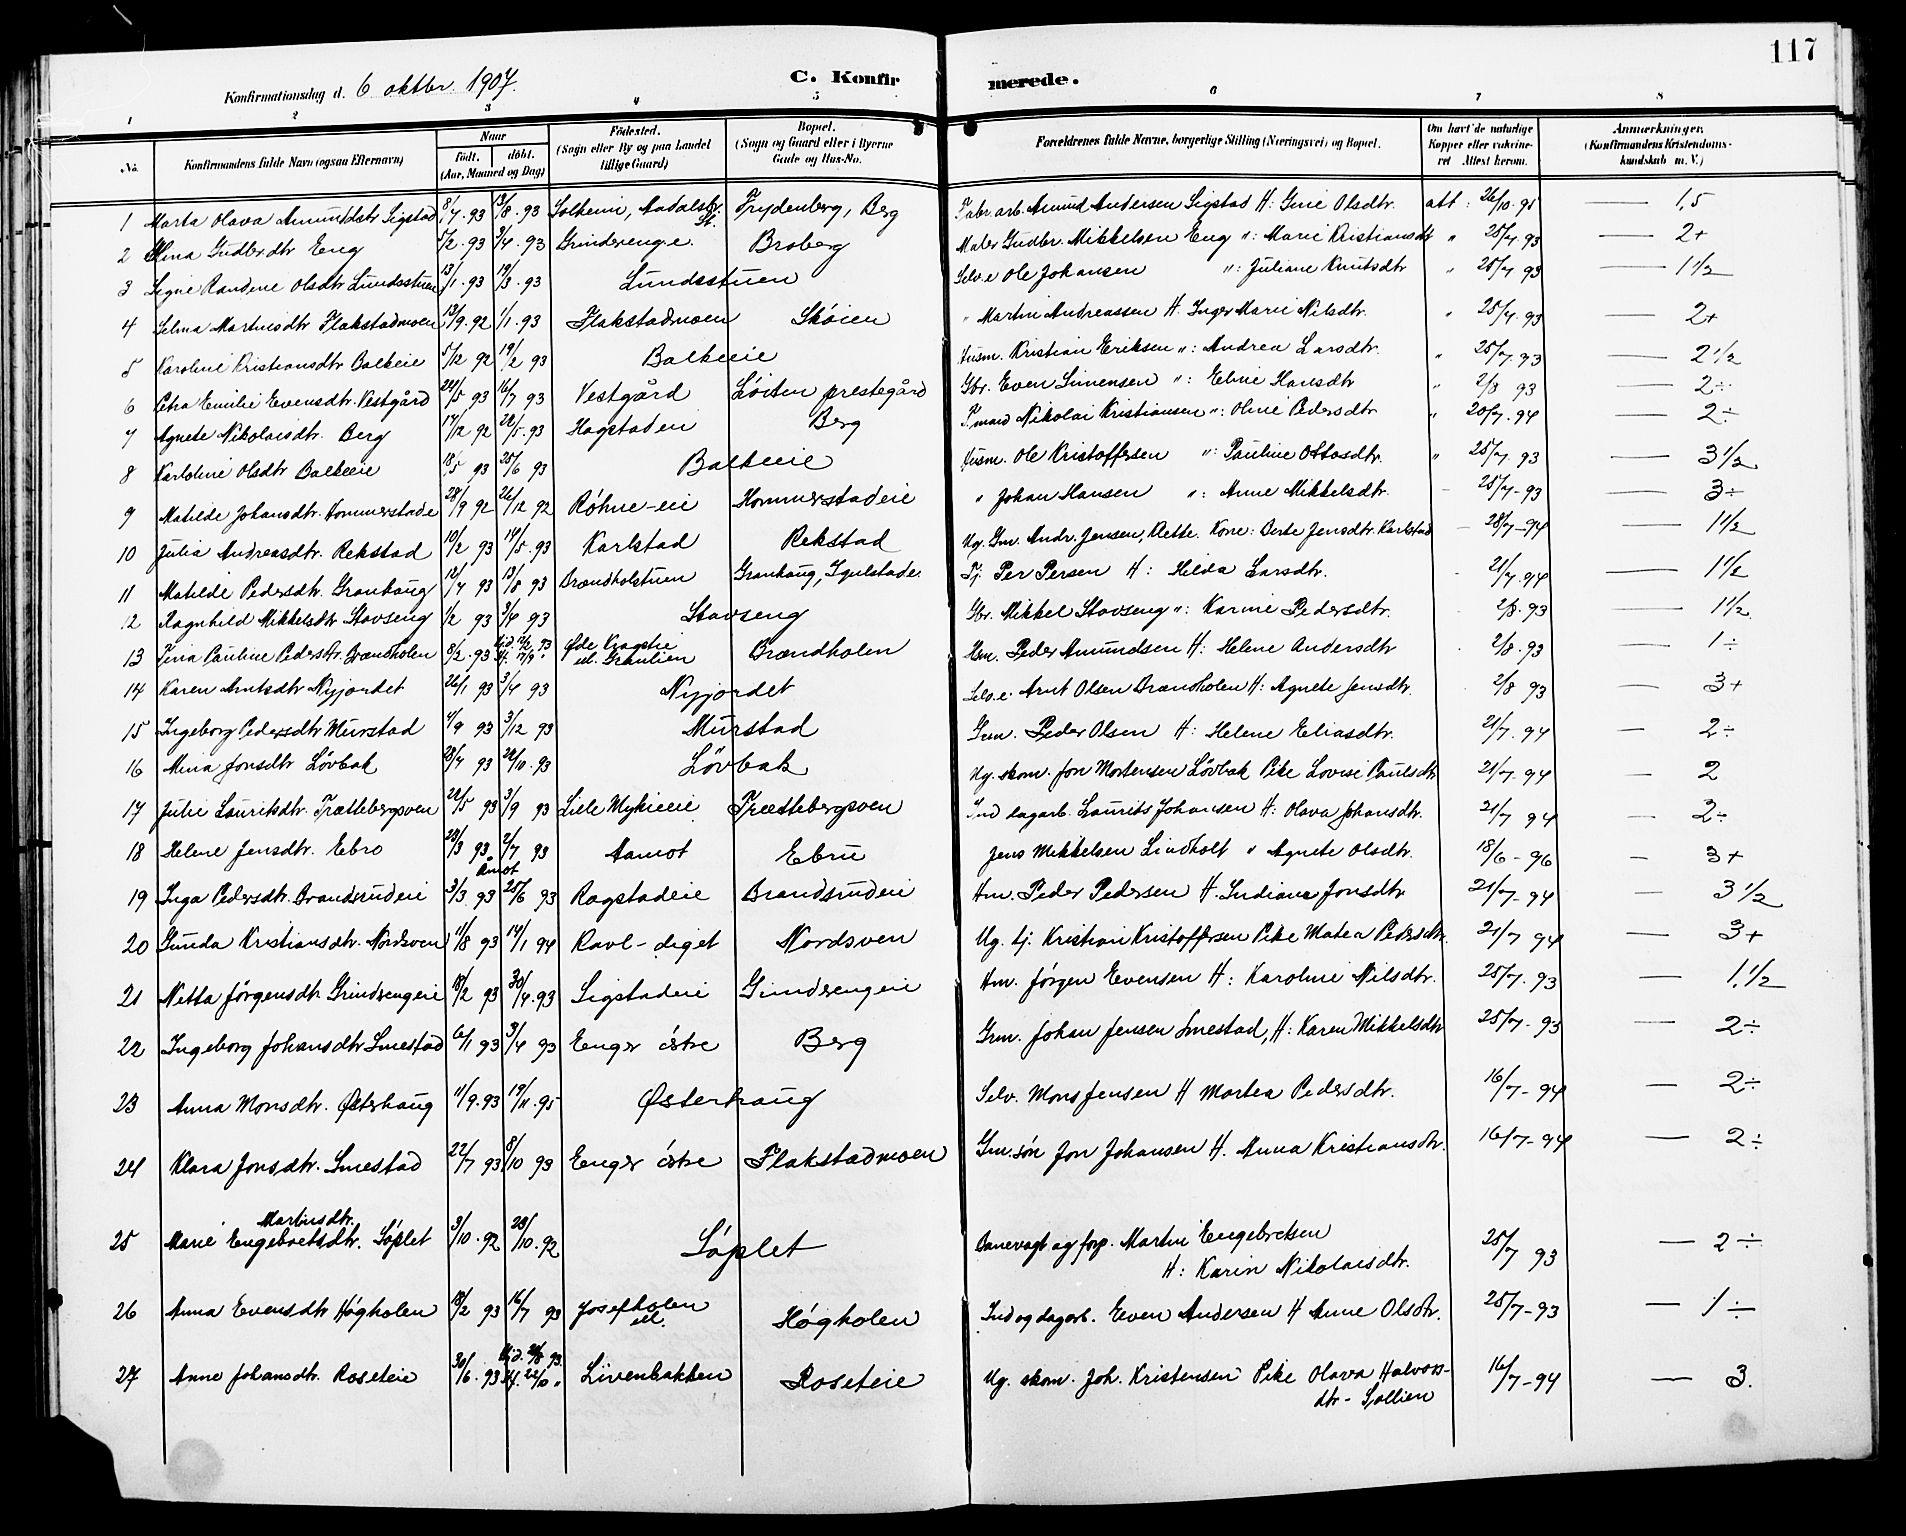 117
Konfirmationsdag d. 6 oktbr. 1907. C. Konfirmerede.
1 2 3 4 5 6 7 8
No. Konfirmandens fulde Navn (ogsaa Efternavn) Naar født. døbt. (Aar, Maaned og Dag) Fødested. (Sogn eller By og paa Landet tillige Gaard) Bopæl. (Sogn og Gaard eller i Byerne Gade og Hus-No. Forældrenes fulde Navne, borgerlige Stilling (Næringsvei) og Bopæl. Om havt de naturlige Kopper eller vaccineret Attest herom. Anmerkninger. (Konfirmandens Kristendomskundskab m. V.)
1 Marta Olava Amundsdtr Sigstad 8/7. 93 13/8. 93 Solheim, Aadalsbr. St. Frydenberg, Berg Fabr. arb. Amund Andersen Sigstad H: Olsdtr. att: 26/10. 95 — 1,5
2 Gudbr.dtr Eng 5/2. 93 3/4. 93 Grindsenge. Broberg Maler Gudbr. Mikkelsen Eng ": Marie Kristiansdtr " 25/7. 93 — 2+
3 Signe Randine Olsdtr Lundsstuen 13/1. 93 19/3. 93 Lundsstuen Selv.e Ole Johansen ": Juliane Knutsdtr " 25/7 93 — 1 1/2
4 Selma Martinsdtr Flakstadmoen 13/9. 92 1/1. 93 Flakstadmoen Skøien " Martin Andreassen H. Inger Marie Nilsdtr. " 25/7. 93 — 2+
5 Karoline Kristiansdtr Balkeie 5/12 92 19/2 93 Balkeeie Husm. Kristian Eriksen ": Andrea Larsdtr. " 25/7. 93 — 2 1/2
6 Petra Emilie Evensdtr. Vestgård 24/5 93 16/7 93 Vestgård Løiten prestegård Gbr. Even Simensen ": Eline Hansdtr " 2/8 93 — 2÷
7 Agnete Nikolaisdtr. Berg 17/12 92 22/5. 93 Hagstadeni Berg Nikolai Kristiansen ": Oline Pedersdtr " 20/7. 94 — 2÷
8 Karoline Olsdtr Balkeeie 18/5 93 25/6 93 Balkeeie Husm. Ole Kristoffersen ": Pauline Ottosdtr. " 25/7. 93 — 3 1/2
9 Matilde Johansdtr. Hommerstade 28/9 92 26/12 92 Røhne-eie Hommerstadeie " Johan Hansen ": Anne Mikkelsdtr. - 25/7-93 — 3÷
10 Julia Andreasdtr. Rekstad 10/2 93 14/5. 93 Karlstad Rekstad Ug. Gm. Andr. Jensen, Klette. Kone: Berte Jensdtr. Karlstad - 28/7-94 — 1 1/2
11 Matilde Pedersdtr. Granhaug 12/7 93 13/8 93 Brændholstuen Granhaug, Per Persen H: Hilda Larsdtr. - 21/7. 94 — 1 1/2
12 Ragnhild Mikkelsdtr Stavseng 1/2 93 3/4 93 Stavseng Gbr. Mikkel Stavseng ": Karine Pedersdtr. 2/8. 93 — 1 1/2
13 Pauline Pedersdtr. Brændholen 8/2. 93 Brændholen Hsm. Peder Amundsen H: Helene Andersdtr 2/8. 93 — 1÷
14 Karen Arntsdtr Nyjordet 26/1 93 3/4 93 Nyjordet Selv.e. Arnt Olsen Brændholen H: Agnete Jensdtr. 2/8 93 — 3+
15 Ingeborg Pedersdtr Murstad 4/9 93 3/12 93 Murstad Grm. Peder Olsen H: Helene Eliasdtr. 21/7. 94 — 2÷
16 Mina Jonsdtr Løvbak 23/7 93 29/10. 93 Løvbak Ug. skom. Jon Mortensen Løvbak Pike Lovise Paulsdtr 21/7-94 — 2
17 Julie Lauritsdtr. Trættebergsven 22/5 93 3/9 93 Lille Mykieeie Trættebergsven Ind dagarb. Laurits Johansen H: Olava Johansdtr. 21/7 94 — 2÷
18 Helene Jensdtr. Ebro 23/3 93. 2/7 93 Aamot Ebru Jens Mikkelsen Lindholt " Agnete Olsdtr. 18/6-96 — 3+
Åmot
19 Inga Pedersdtr. Brandsrudeie 3/3 93 25/6 93 Ragstadeie Brandsrudeie Hm. Peder Pedersen H. Indiana Jonsdtr 21/7-94 — 3 1/2
20 Gunda Kristiansdtr. Nordsven 11/8 93 14/1 94 Ravl-diget Nordsven Ug. tj. Kristian Kristoffersen Pike Matea Pedersdtr. 21/7 94 — 3+
21 Netta Jørgensdtr Grindsengeie 18/2 93 30/4. 93 Sigstadeie Grindsengeie Hm. Jørgen Evensen H: Karoline Nilsdtr. 25/7. 93 — 1,1/2
22 Ingeborg Johansdtr Smestad 6/1 93 3/4 93 Enger østre Berg Grm. Johan Jensen Smestad, H: Karen Mikkelsdtr 25/7-93 — 2÷
23 Anna Monsdtr. Østerhaug 11/9. 93 19/11. 95 Østerhaug Selv. Mons Jensen H Martea Pedersdtr. 16/7-94 — 2÷
24 Klara Jonsdtr. Smestad 22/7 93 8/10 93 Enger østre Flakstadmoen Gm. søn Jon Johansen H. Anna Kristiansdtr. 16/7-94 — 2÷
Martinsdtr.
25 Marie Engebretsdtr. Søplet 3/10. 92 23/10. 92 Søplet Banevagt og forp. Martin Engebretsen 25/7 93 — 2÷
H: Karin Nikolaisdtr.
26 Anna Evensdtr Høgholen 18/2 93 16/7 93 Josefholen Høgholen Ind og dagarb. Even Andersen H Anne Olsdtr. 25/7-93 — 1÷
27 Anne Johansdtr. Roseteie 30/6. 93 Livenbakken Roseteie Ug. skom. Joh. Kristensen Pike Olava Halvors- 16/7-94 — 3.
dtr-